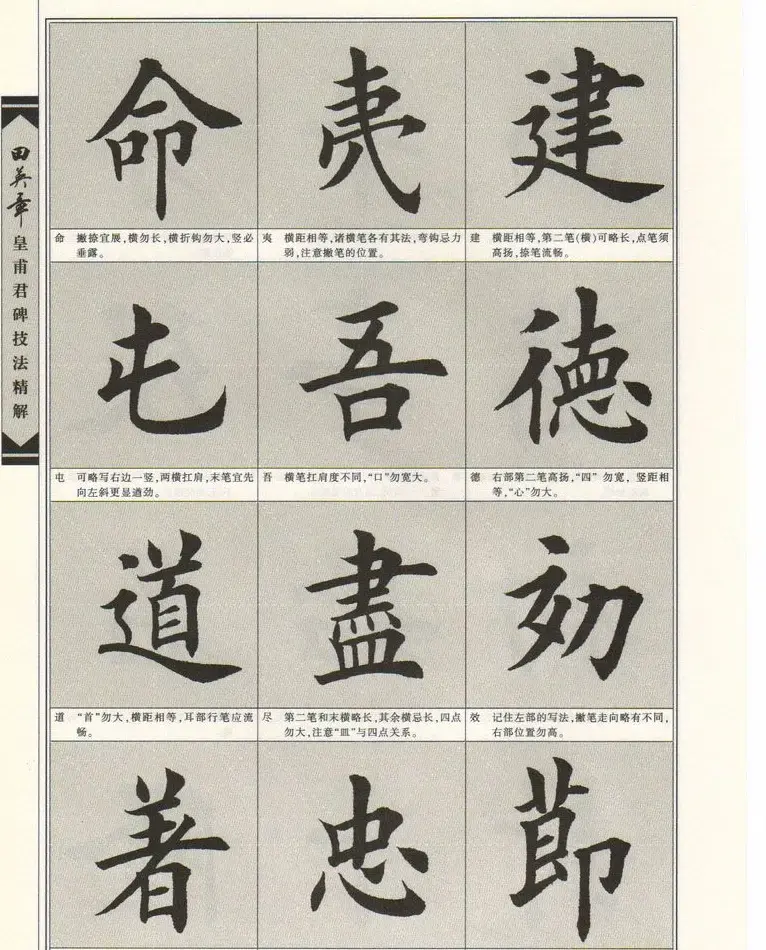 田英章
皇甫君碑技法精解
命 夷 建
命 撇捺宜展,横勿长,横折钩勿大,竖必
垂露。
夷 横距相等,诸横笔各有其法,弯钩忌力
弱,注意撇笔的位置。
建 横距相等,第二笔(横)可略长,点笔须
高扬,捺笔流畅。
屯 吾 德
屯 可略写右边一竖,两横扛肩,末笔宜先
向左斜更显遒劲。
吾 横笔扛肩度不同,“口”勿宽大。
德 右部第二笔高扬,“四”勿宽,竖距相
等,“心”勿大。
道 盡 効
道 “首”勿大,横距相等,耳部行笔应流
畅。
尽 第二笔和末横略长,其余横忌长,四点
勿大,注意“皿”与四点关系。
效 记住左部的写法,撇笔走向略有不同,
右部位置勿高。
著 忠 節